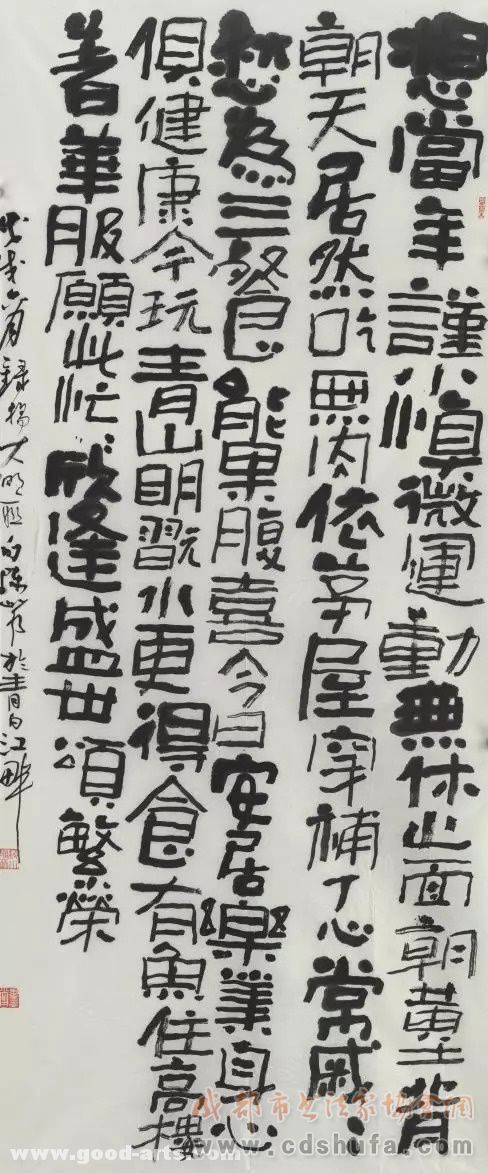 想當年謹小慎微運動無休止面朝黃土背
朝天居然吃無肉依茅屋穿補丁心常戚々
愁為三餐食能果腹喜今日安居樂業身心
俱健康今玩青山明翫水更得食有魚住高樓
着華服願此忙々欣逢盛世頌繁榮
戊戌錄楊大明句陳於青白江畔
成都市书法家协会网
www.cdshufa.com
www.good-arts.com